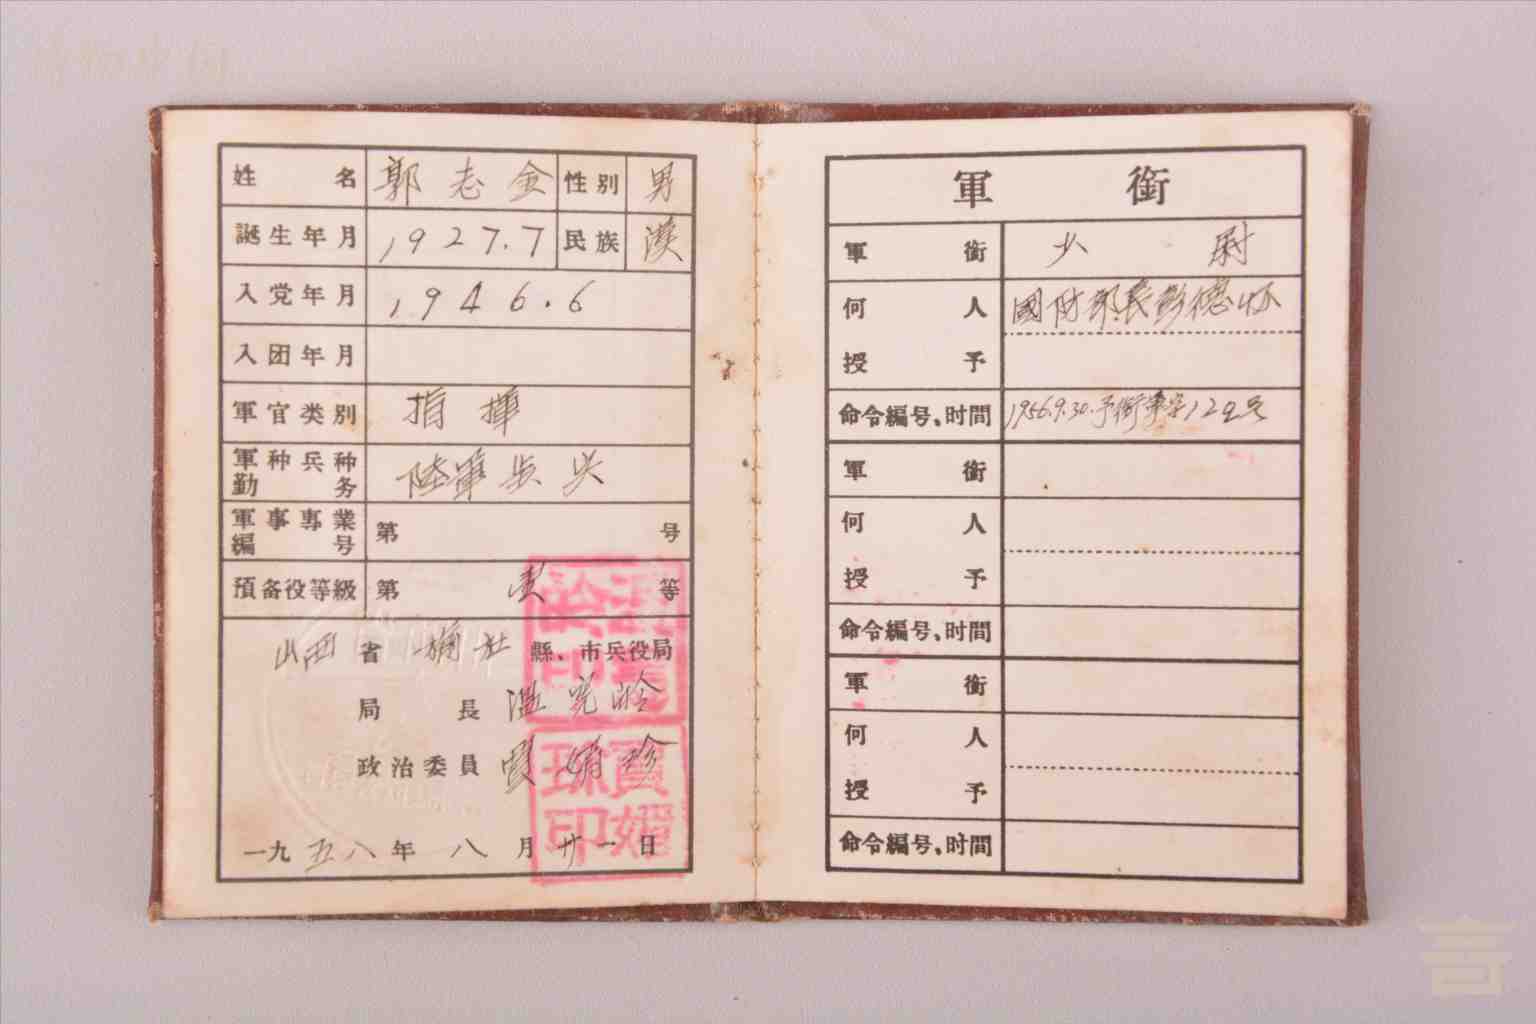 姓名 郭志金 性别 男
誕生年月 1927.7 民族 漢
入党年月 1946.6
入团年月
軍官类别 指揮
軍种兵种
勤务 陸軍步兵
軍事專業
編号 第 号
預备役等級 第 壹 等
山西省 榆社 縣、市兵役局
局長 溫完
政治委員
一九五八年八月廿一日
軍銜
軍銜 少尉
何人 國防部長彭德怀
授予
命令編号、时间 1956.9.30.予銜軍字129号
軍銜
何人
授予
命令編号、时間
軍銜
何人
授予
命令編号、时間